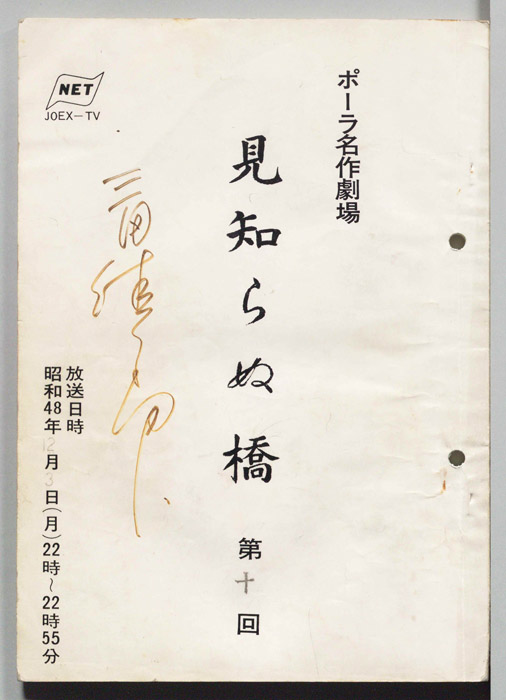 ポーラ名作劇場
見知らぬ橋 第十回
NET
JOEX－TV
放送日時
昭和48年12月3日(月)22時～22時55分